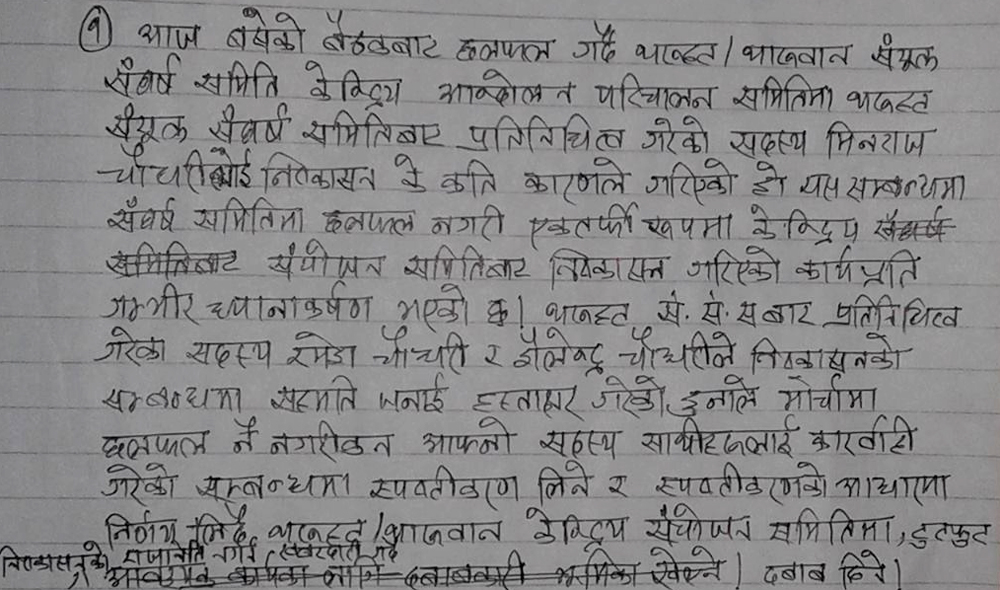 १ आज बसेको बैठकबाट छलफल गर्दै थारुहट/थारुवान संयूक्त
संघर्ष समिति केन्द्रिय आन्दोलन परिचालन समितिमा थारुहट
संयूक्त संघर्ष समितिबाट प्रतिनिधित्व गरेको सदस्य मिनराज
चौधरीलाई निश्कासन के कति कारणले गरिएको हो यस सम्बन्धमा
संघर्ष समितिमा छलफल नगरी एकतर्फी रूपमा केन्द्रिय संघर्ष
समितिबाट संयोजन समितिबाट निश्कासन गरिएको कार्यप्रति
गम्भीर ध्यानाकर्षण भएको छ। थारुहट सं. सं. स बाट प्रतिनिधित्व
गरेका सदस्य रमेश चौधरी र शैलेन्द्र चौधरीले निश्कासनको
सम्बन्धमा सहमति जनाई हस्ताक्षर गरेको हुनाले मोर्चामा
छलफल नै नगरीकन आफ्नो सदस्य साथीहरूलाई कारवाही
गरेको सम्बन्धमा स्पष्टीकरण लिने र स्पष्टीकरणको आधारमा
निर्णय लिदै थारुहट/थारुवान केन्द्रिय संयोजन समितिमा, टुटफुट
निश्कासनको राजनीति नगर्न, खबरदारी गर्दै
आवश्यक कार्यका लागि दबाबकारी भूमिका खेल्ने। दबाब दिने।